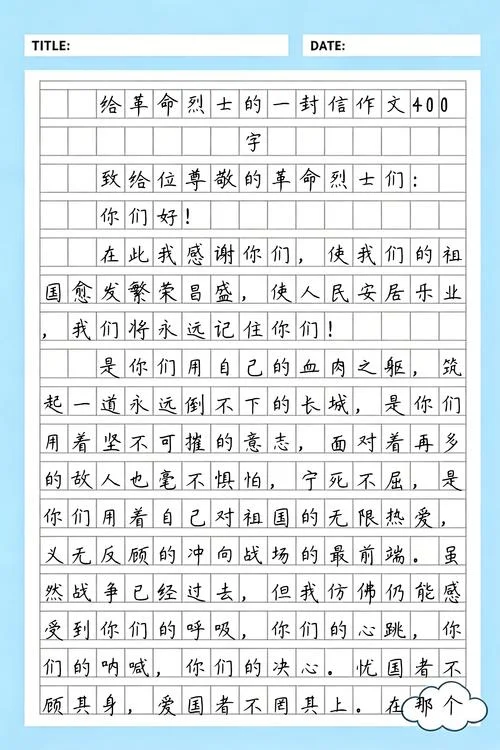 TITLE: DATE:
给革命烈士的一封信作文400
字
致给位尊敬的革命烈士们:
你们好!
在此我感谢你们，使我们的祖
国愈发繁荣昌盛，使人民安居乐业
，我们将永远记住你们!
是你们用自己的血肉之躯，筑
起一道永远倒不下的长城，是你们
用着坚不可摧的意志，面对着再多
的敌人也毫不惧怕，宁死不屈，是
你们用着自己对祖国的无限热爱，
义无反顾的冲向战场的最前端。虽
然战争已经过去，但我仿佛仍能感
受到你们的呼吸，你们的心跳，你
们的呐喊，你们的决心。忧国者不
顾其身，爱国者不罔其上。在那个